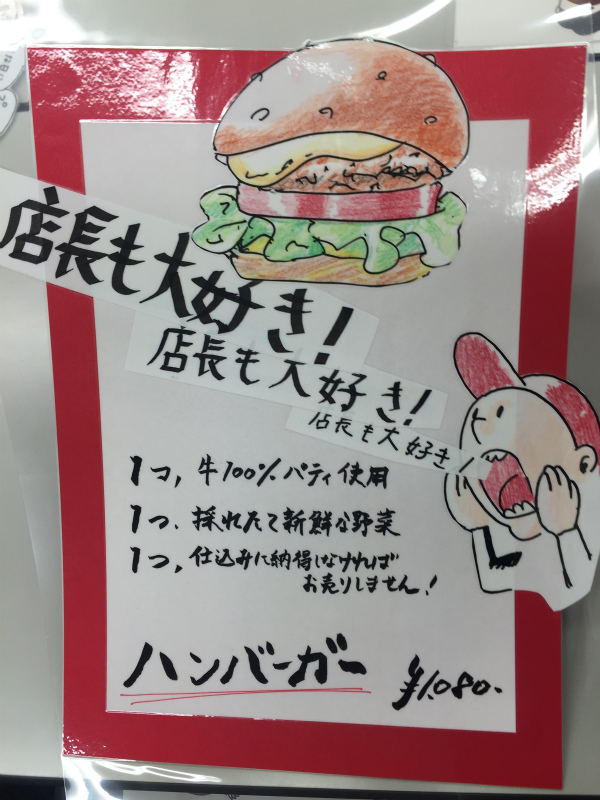 店長も大好き!
店長も大好き!
店長も大好き
1つ、牛100%パティ使用
1つ、採れたて新鮮な野菜
1つ、仕込みに納得しなければ
お売りしません!
ハンバーガー ¥1,080-